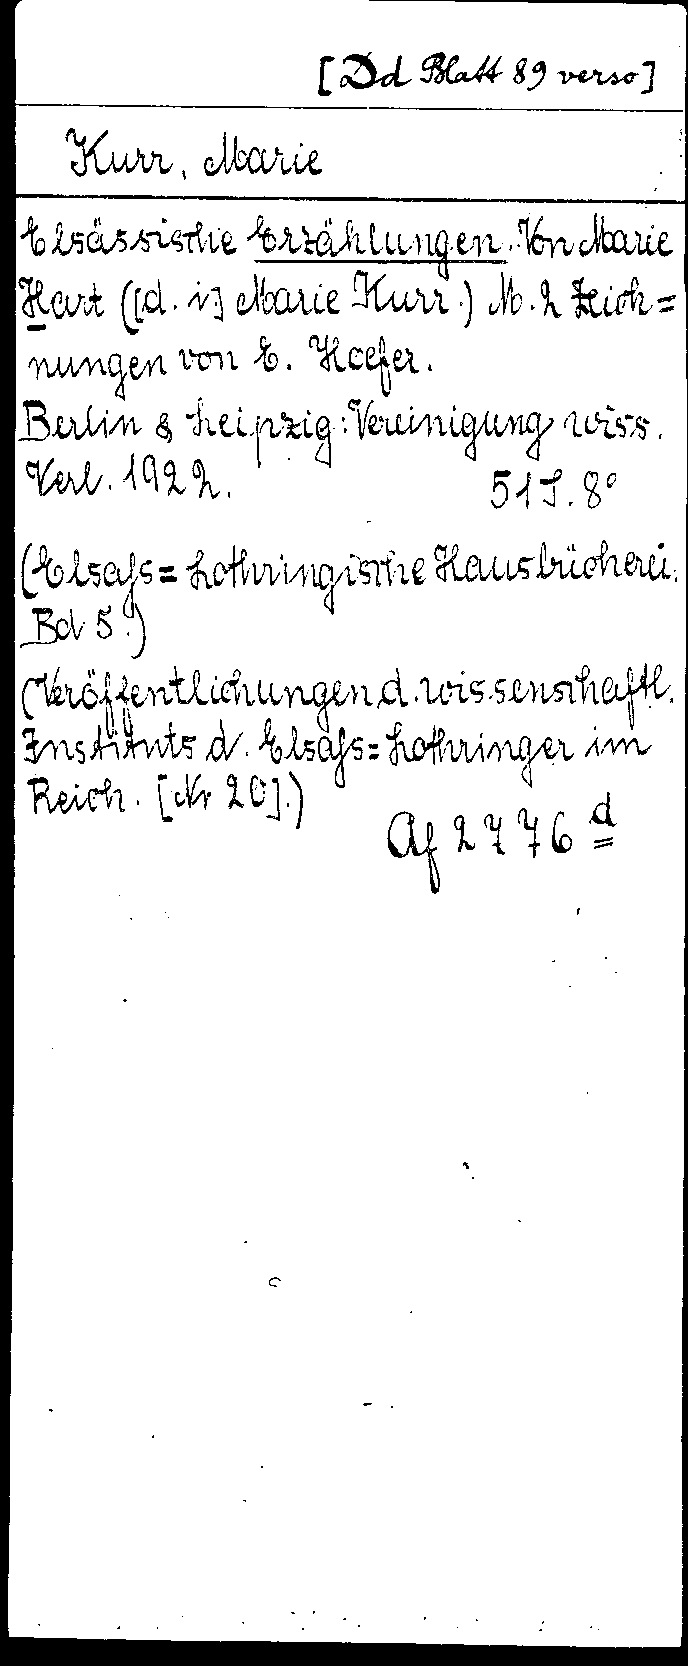 [Dd Blatt 89 verso]
Kurr, Marie
Elsässische Erzählungen. Von Marie
Hart ([d. i] Marie Kurr.) M. 2 Zeich=
nungen von E. Hoefer.
Berlin & Leipzig: Vereinigung wiss.
Verl. 1922.
51 S. 8°
(Elsaſs=Lothringische Hausbücherei.
Bd 5.)
(Veröffentlichungen d. wissenschaftl.
Instituts d. Elsaſs=Lothringer im
Reich. [Nr 20].)
Af 2776 d